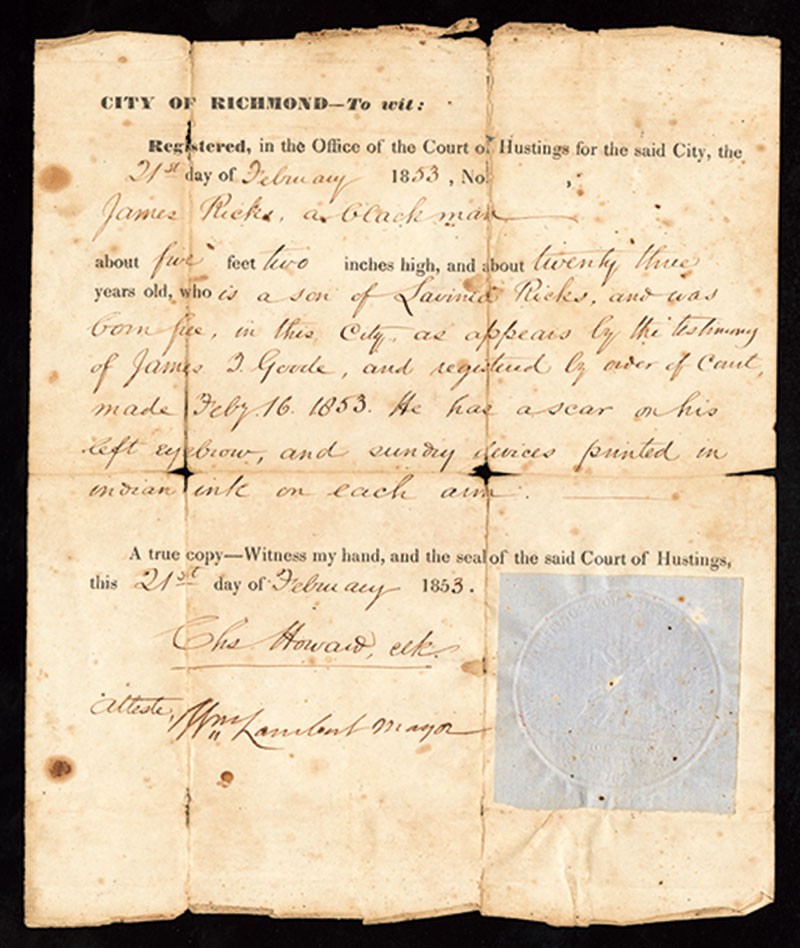 CITY OF RICHMOND—To wit:
Registered, in the Office of the Court of Hustings for the said City, the
21st day of February 1853, No. ,
James Ricks, a black man
about five feet two inches high, and about twenty three
years old, who is a son of Lavinia Ricks, and was
born free, in this City, as appears by the testimony
of James T. Goode, and registered by order of Court,
made Feby. 16. 1853. He has a scar on his
left eyebrow, and sundry devices printed in
indian ink on each arm.
A true copy—Witness my hand, and the seal of the said Court of Hustings,
this 21st day of February 1853.
Chs Howard, clk.
Atteste, Wm Lambert Mayor